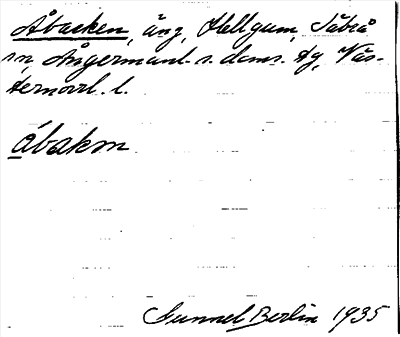 Åbacken, äng, Hellgum, Säbrå
sn, Ångermanl. s. doms. tg, Väs-
ternorrl. l.
åbakən
Gunnel Berlin 1935